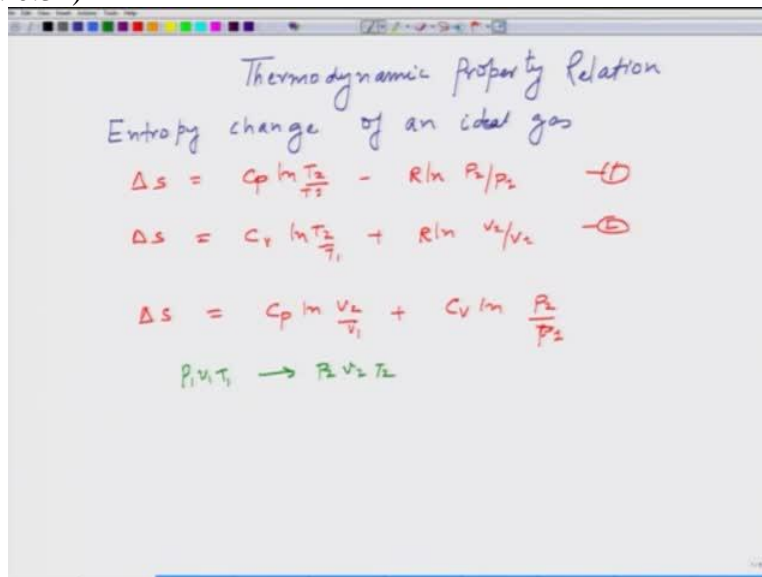 Thermodynamic Property Relation
Entropy change of an ideal gas
Δs = Cp ln T2/T1 - R ln P2/P1 -①
Δs = Cv ln T2/T1 + R ln V2/V1 -②
Δs = Cp ln V2/V1 + Cv ln P2/P1
P1 V1 T1 → P2 V2 T2